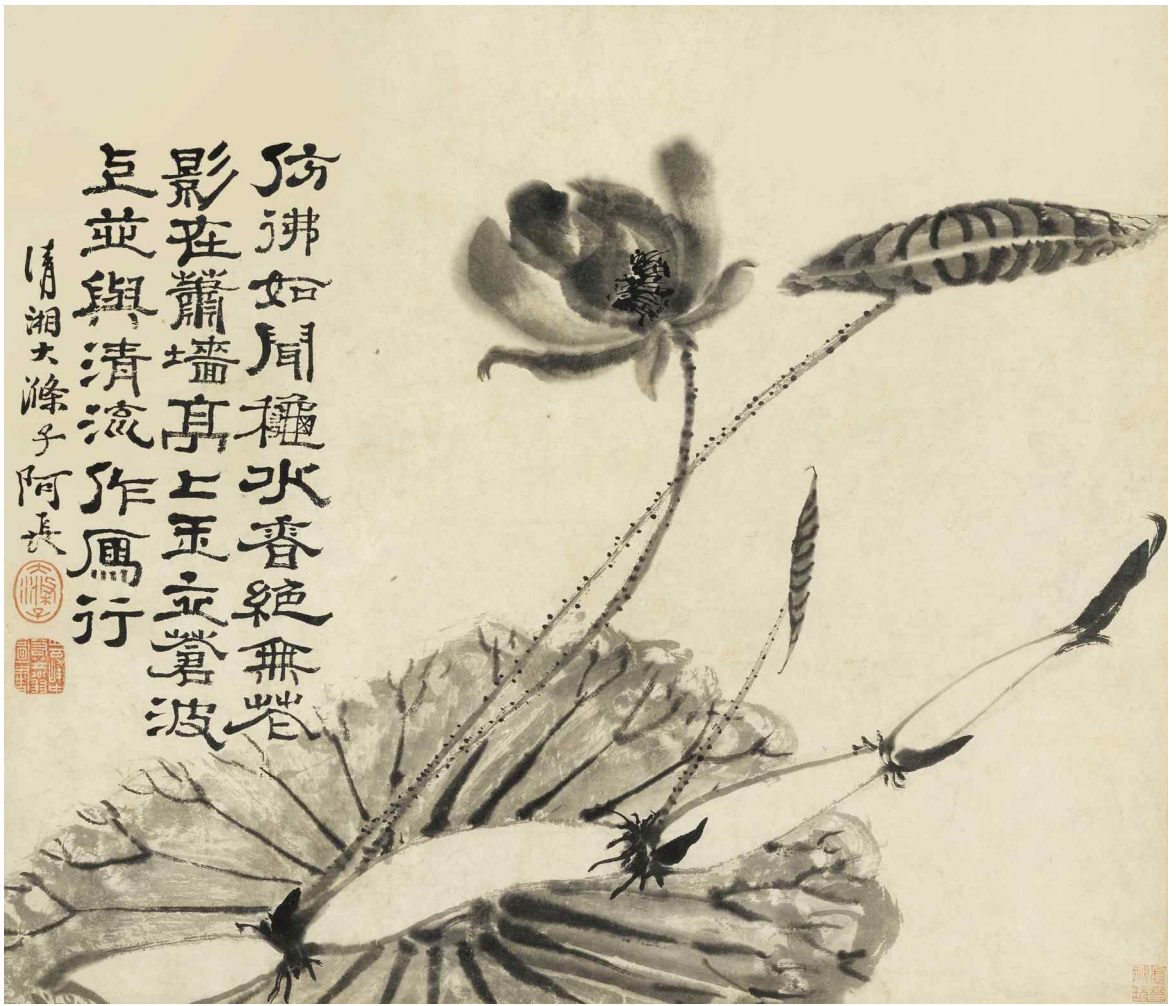 仿彿如聞龝水香絶無花
影在蕭墻亭亭玉立蒼波
上並與清流作鴈行
清湘大滌子阿長
大滌子